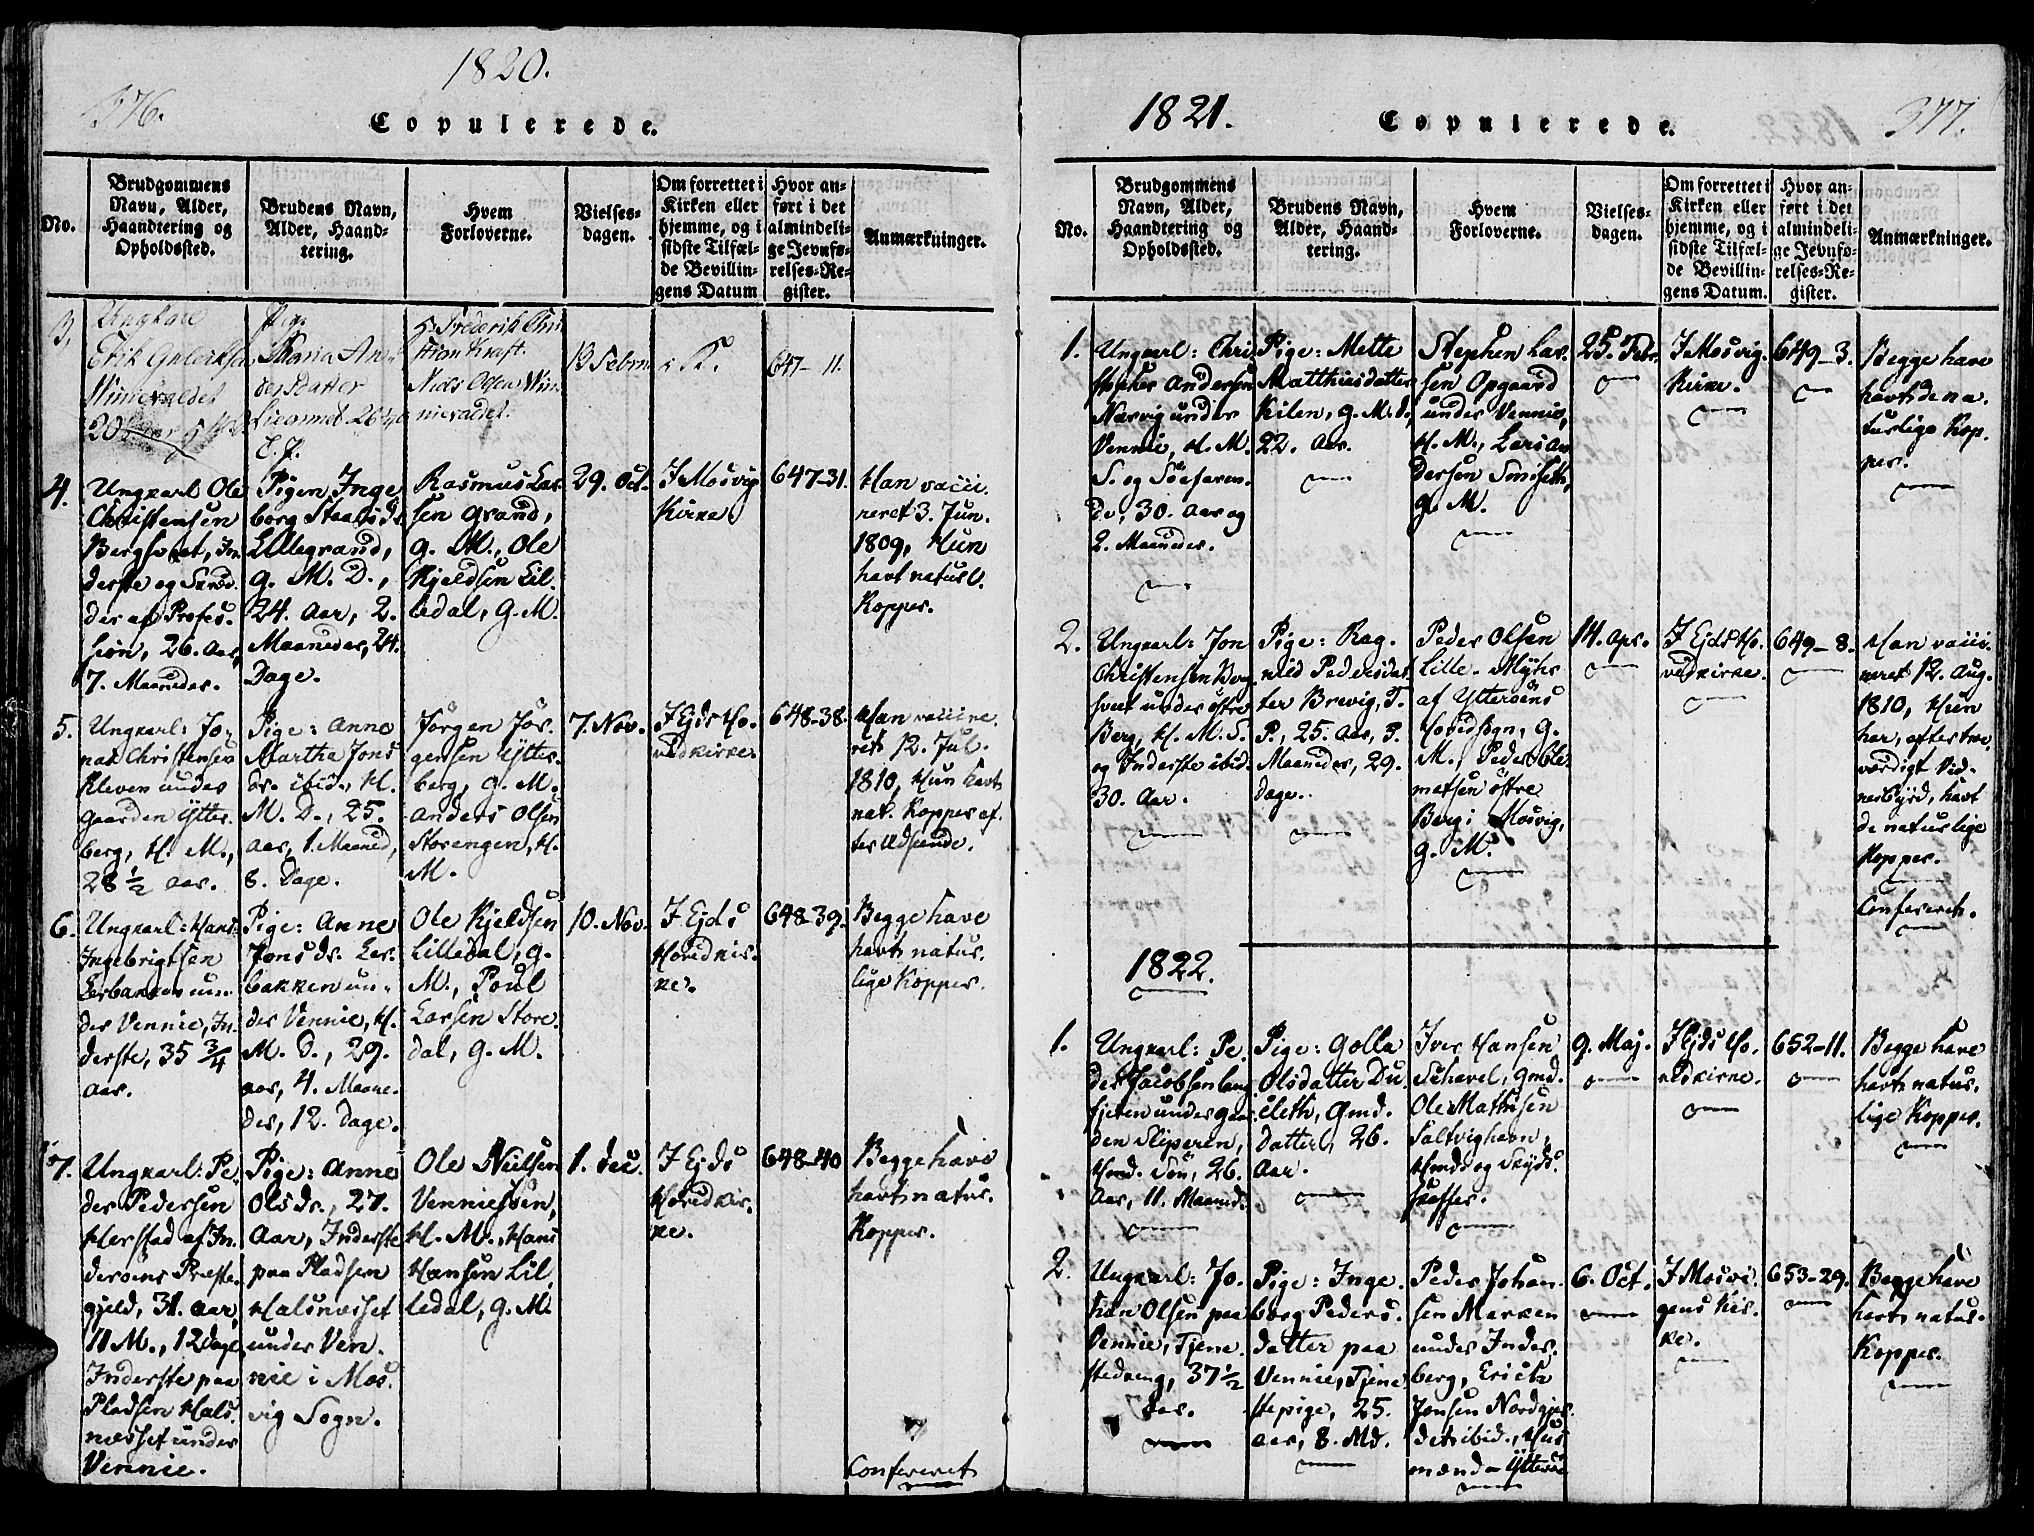 1820.
376.
Copulerede.
No.
Brudgommens
Navn, Alder,
Haandtering og
Opholdssted.
Brudens Navn,
Alder, Haand-
tering.
Hvem
Forloverne.
Vielses-
dagen.
Om forrettet i
Kirken eller
hjemme, og i
sidste Tilfæl-
de Bevillin-
gens Datum
Hvor an-
ført i det
almindeli-
ge Jevnfø-
relses-Re-
gister.
Anmærkninger.
3.
Ungkarl
Erik
20
Pige
Maria An-
ders Datter
26
Frederik Chri-
stian Kraft.
Niels Olsen Vin-
nievaldet.
13 Febru
i K.
647- 11.
4.
Ungkarl Ole
Christensen
Berghvet, In-
derste og
der af Profes-
sion, 26. Aar,
7. Maaneder.
Pigen Inge
borg
Lillegrand,
G. M. D.,
24. Aar, 2.
Maaneder, 24.
Dage.
Rasmus Lar-
sen Grand,
G. M., Ole
Kjeldsen Lil-
ledal, G. M.
29. Oct.
I Mosvig
Kirke
647-31.
Han vacci-
neret 3. Jun.
1809, Hun
havt naturl.
Kopper.
5.
Ungkarl: Jo-
nas Christensen
Kleven under
Gaarden Ytter-
berg, H. M.,
28 1/2 Aar.
Pige: Anne
Martha Jons
dr. ibid., H.
M. D., 25.
Aar, 1. Maaned,
8. Dage.
Jörgen Jör-
gensen Ytter-
berg, G. M.
Anders Olsen
Storengen, H.
M.
7. Nov.
I Ejds Ho-
vedkirke.
648-38.
Han vaccine-
ret 12. Jul.
1810, Hun havt
nat. Kopper ef-
ter Udseende.
6.
Ungkarl: Hans
Ingebrigtsen
Lerbakken un-
der Vennie, In-
derste, 35 3/4
Aar.
Pige: Anne
Jonsdr. Ler-
bakken un-
der Vennie, H.
M. D., 29.
Aar, 4. Maane-
der, 12. Dage.
Ole Kjeldsen
Lilledal, G.
M., Poul
Larsen Store-
dal, G. M.
10. Nov.
I Ejds
Hovedkir-
ke.
648-39.
Begge have
havt natur-
lige Kopper.
7.
Ungkarl: Pe-
der Pedersen
Herstad af In-
deröens Præste-
gjeld, 31. Aar,
11 M., 12 Dage,
Inderste paa
Pladsen Hals-
næsset under
Vennie.
Pige: Anne
Olsdr., 27.
Aar, Inderste
paa Pladsen
Halsnæsset
under Ven-
nie i Mos-
vig Sogn.
Ole Nielsen
Venniesöen,
H. M., Hans
Hansen Lil-
ledal, G. M.
1. Dec.
I Ejds
Hovedkir-
ke.
648-40
Begge have
havt natur.
Kopper.
Confereret
1821.
Copulerede.
377.
No.
Brudgommens
Navn, Alder,
Haandtering og
Opholdssted.
Brudens Navn,
Alder, Haand-
tering.
Hvem
Forloverne.
Vielses-
dagen.
Om forrettet i
Kirken eller
hjemme, og i
sidste Tilfæl-
de Bevillin-
gens Datum.
Hvor an-
ført i det
almindeli-
ge Jevnfø-
relses-Re-
gister.
Anmærkninger.
1.
Ungkarl: Chri-
stopher Andersen
Næsvig under
Vennie, H. M.
S. og Söefaren-
de, 30. Aar og
2. Maaneder.
Pige: Mette
Matthiesdatter
Kilen, G. M. D.,
22. Aar.
Stephen Lar-
sen Opgaard
under Vennie,
H. M., Lars An-
dersen Smiseth,
G. M.
25. Febr.
I Mosvig
Kirke.
649-3.
Begge have
havt de na-
turlige Kop-
per.
2.
Ungkarl: Jon
Christensen Berg-
hvet under östre
Berg, H. M. S.
og Inderste ibid.
30. Aar.
Pige: Rag-
nild Pedersdat-
ter Brevig, T.
P., 25. Aar, 3.
Maaneder, 29.
Dage.
Peder Olsen
Lille-Myhr
af Ytteröens
Hovedsogn, G.
M., Peder Cle-
metsen östre
Berg i Mosvig,
G. M.
14. Apr.
I Ejds Ho-
vedkirke.
649-8.
Han vacci-
neret 12. Aug.
1810, Hun
har, efter tro-
værdigt Vid-
nesbyrd, havt
de naturlige
Kopper.
Confereret.
1822.
1.
Ungkarl: Pe-
der Jacobsen Lang-
fjeren under Gaar-
den Slipren,
Hmd. Sön, 26.
Aar, 11. Maaned.
Pige: Golla
Olsdatter Du-
seleth, Gmd.
Datter, 26.
Aar.
Iver Hansen
Schavel, Gmd.
Ole Mathisen
Saltvighavn,
Hmd og Skyds-
skaffer.
9. Maj.
I Ejds Ho-
vedkirke.
652-11.
Begge have
havt natur-
lige Kopper.
2.
Ungkarl: Jo-
han Olsen paa
Vennie, Tjene-
stedreng, 37 1/2
Aar.
Pige: Inge-
borg Peders-
datter paa
Vennie, Tjene-
stepige, 25.
Aar, 8. Md.
Peder Johan-
sen Marken
under Inder-
berg, Erich
Jonsen Nordgjer-
det ibid., Hus-
mænd - Ytteröe
6. Oct.
I Mosvi-
gens Kir-
ke.
653-29.
Begge have
havt natur.
Kopper.